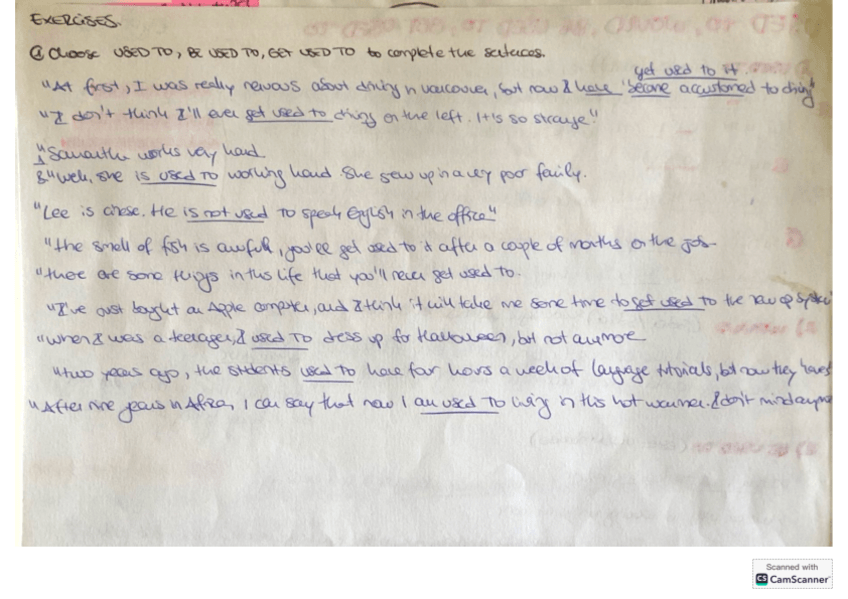 EXERCISES.
① Choose USED TO, BE USED TO, GET USED TO to complete the sentences.
get used to it
"At first, I was really nervous about driving in Vancouver, but now I have become accustomed to driving"
"I don't think I'll ever get used to driving on the left. It is so strange."
A "Samantha works very hard
B "Well, she is used to working hard. She grew up in a very poor family.
"Lee is chinese. He is not used to speak English in the office"
"the smell of fish is awful, you'll get used to it after a couple of months on the job
"there are some things in this life that you'll never get used to.
"I've just bought an Apple computer, and I think it will take me some time to get used to the new op
"when I was a teenager, I used to dress up for Halloween, but not anymore
"two years ago, the students used to have four hours a week of language tutorials, but now they
"After nine years in Africa, I can say that now I am used to living in this hot I don't mind
Scanned with
CS CamScanner